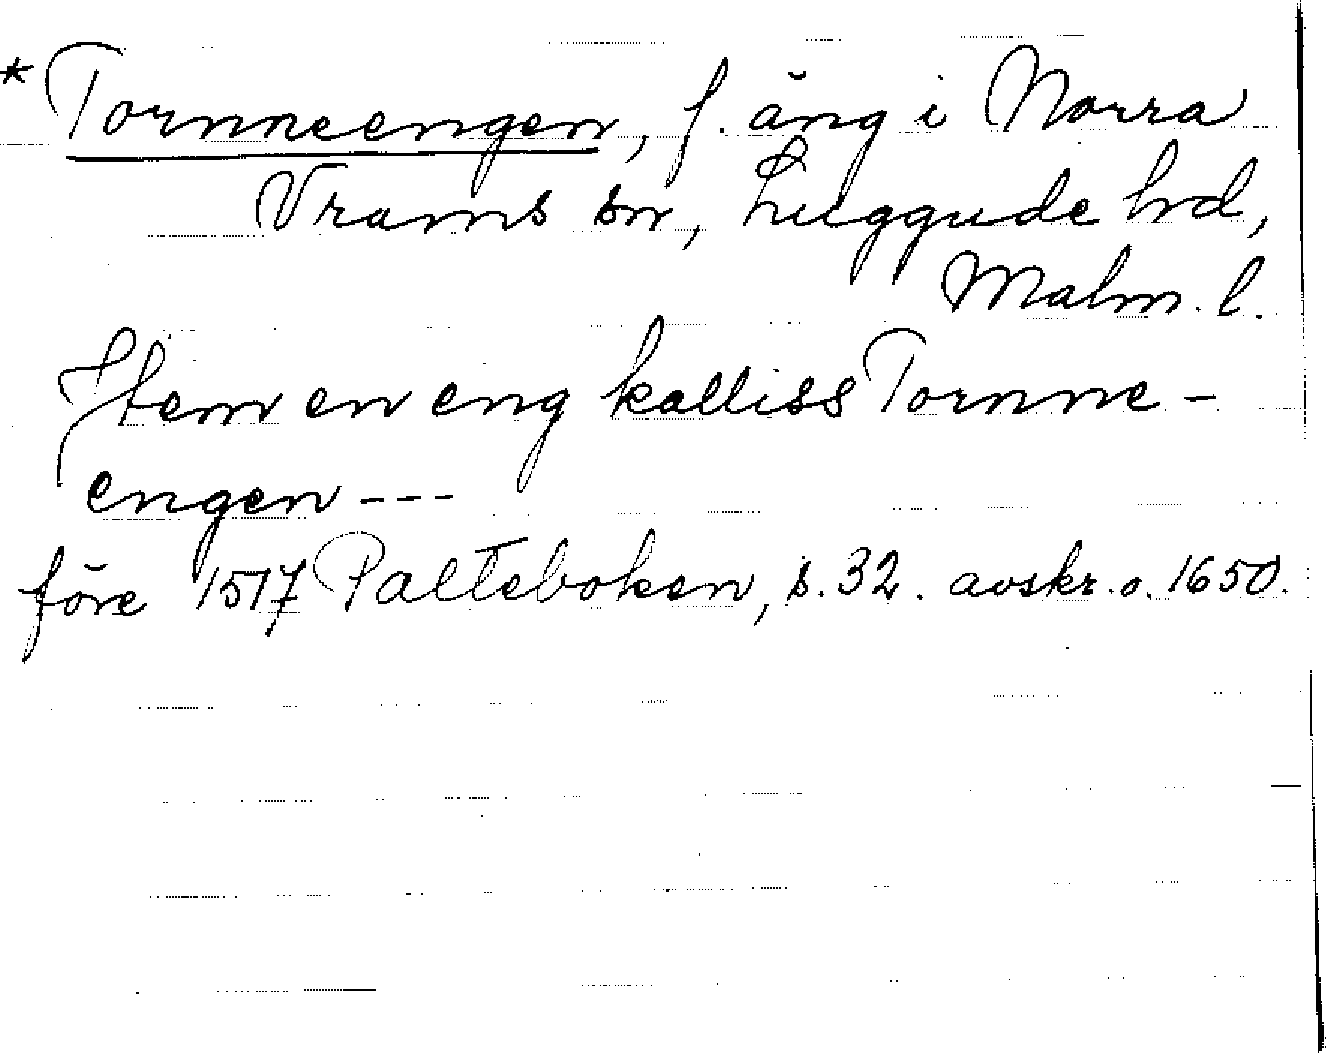 * Tornneengen, f. äng i Norra
Vrams sn, Luggude hd,
Malm. l.
Jtem en eng kalliss Tornne-
engen ---
före 1517 Palteboken, s. 32. avskr. o. 1650.